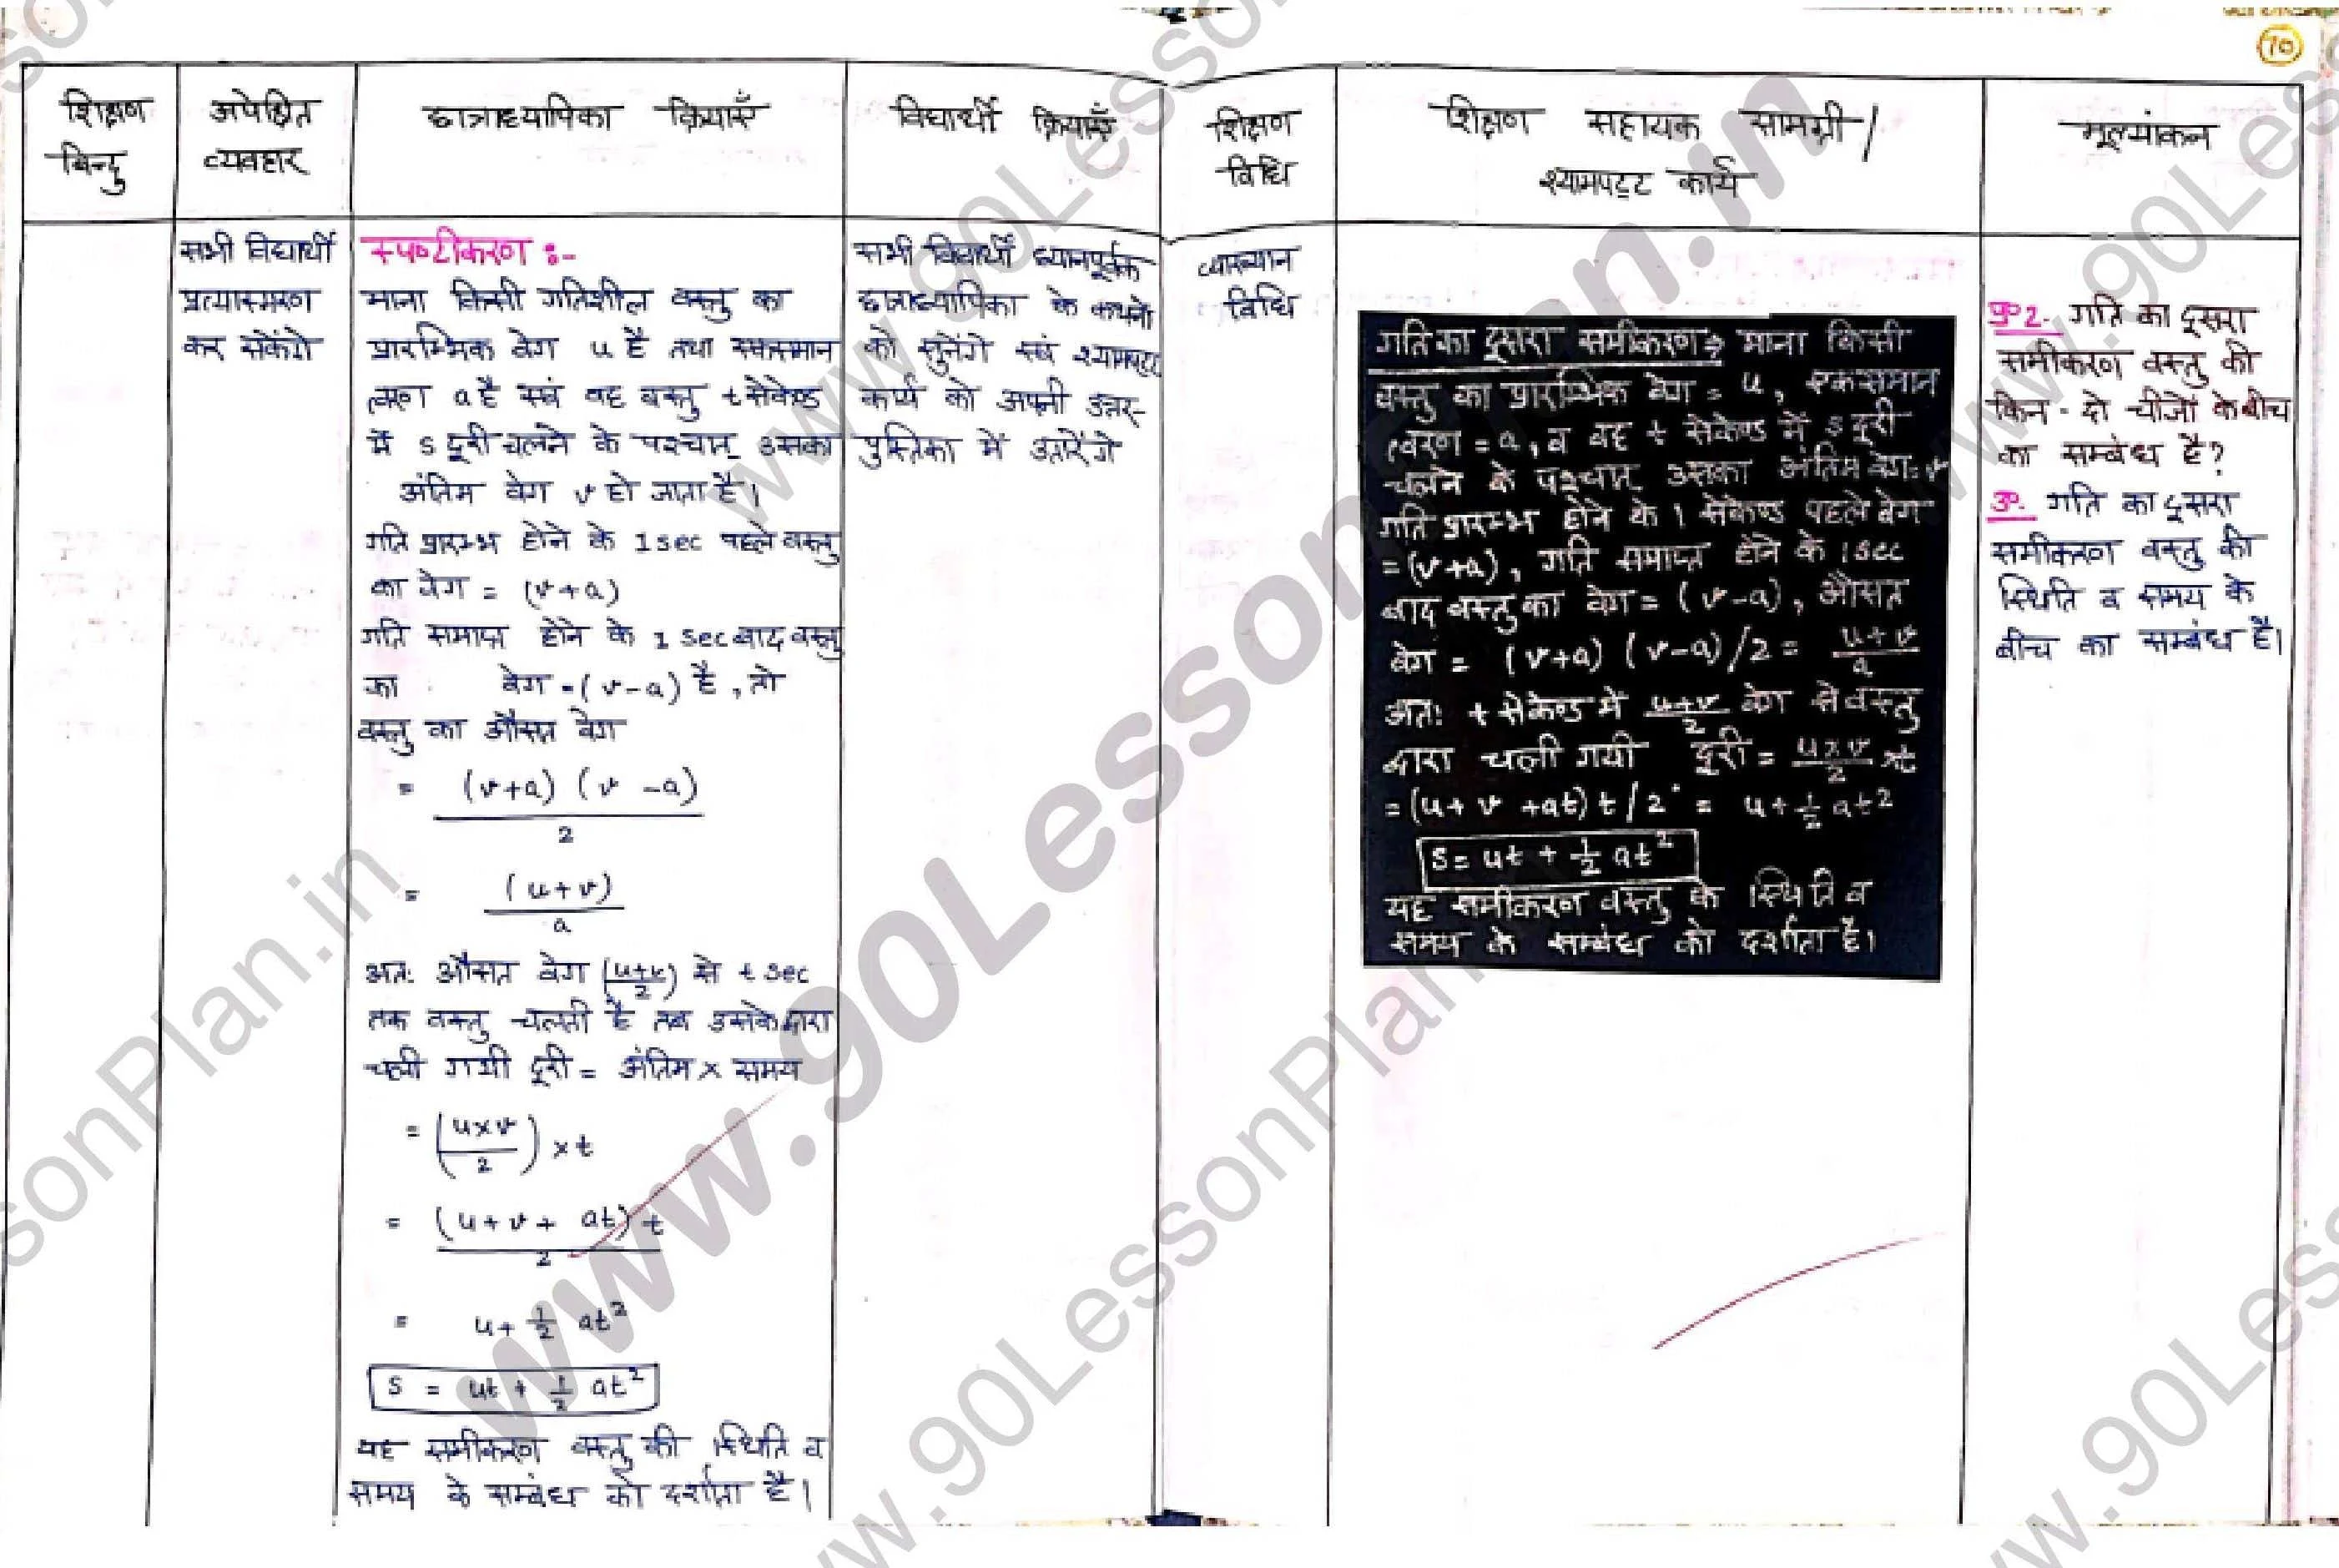 70
शिक्षण
बिन्दु
अपेक्षित
व्यवहार
छात्राध्यापिका क्रियाएँ
विद्यार्थी क्रियाएँ
शिक्षण
विधि
शिक्षण सहायक सामग्री /
श्यामपट्ट कार्य
मूल्यांकन
सभी विद्यार्थी
प्रत्यास्मरण
कर सकेंगे
स्पष्टीकरण :-
माना किसी गतिशील वस्तु का
प्रारम्भिक वेग u है तथा एकसमान
त्वरण a है एवं वह वस्तु t सेकेण्ड
में s दूरी चलने के पश्चात् उसका
अंतिम वेग v हो जाता है।
गति प्रारम्भ होने के 1 sec पहले वस्तु
का वेग = (v+a)
गति समाप्त होने के 1 sec बाद वस्तु
का वेग = (v-a) है, तो
वस्तु का औसत वेग
= (v+a) (v -a)
2
= (u+v)
a
अतः औसत वेग (u+v/2) से t sec
तक वस्तु चलती है तब उसके द्वारा
चली गयी दूरी = अंतिम × समय
= (u×v/2) × t
= (u+v+ at) t
2
= u+ 1/2 at²
s = ut + 1/2 at²
यह समीकरण वस्तु की स्थिति व
समय के सम्बंध को दर्शाता है।
सभी विद्यार्थी ध्यानपूर्वक
छात्राध्यापिका के कथनों
को सुनेंगे एवं श्यामपट्ट
कार्य को अपनी उत्तर-
पुस्तिका में उतारेंगे
व्याख्यान
विधि
गति का दूसरा समीकरण → माना किसी
वस्तु का प्रारम्भिक वेग = u, एकसमान
त्वरण = a, व वह t सेकेण्ड में s दूरी
चलने के पश्चात् उसका अंतिम वेग = v
गति प्रारम्भ होने के 1 सेकेण्ड पहले वेग
= (v+a), गति समाप्त होने के 1 sec
बाद वस्तु का वेग = (v-a), औसत
वेग = (v+a) (v-a)/2 = u+v/a
अतः t सेकेण्ड में u+v/2 वेग से वस्तु
द्वारा चली गयी दूरी = u×v/2 ×t
= (u+ v +at) t/2 = u+ 1/2 at²
s= ut + 1/2 at²
यह समीकरण वस्तु के स्थिति व
समय के सम्बंध को दर्शाता है।
प्र०2. गति का दूसरा
समीकरण वस्तु की
किन-दो चीजों के बीच
का सम्बंध है?
उ०. गति का दूसरा
समीकरण वस्तु की
स्थिति व समय के
बीच का सम्बंध है।
www.90LessonPlan.in